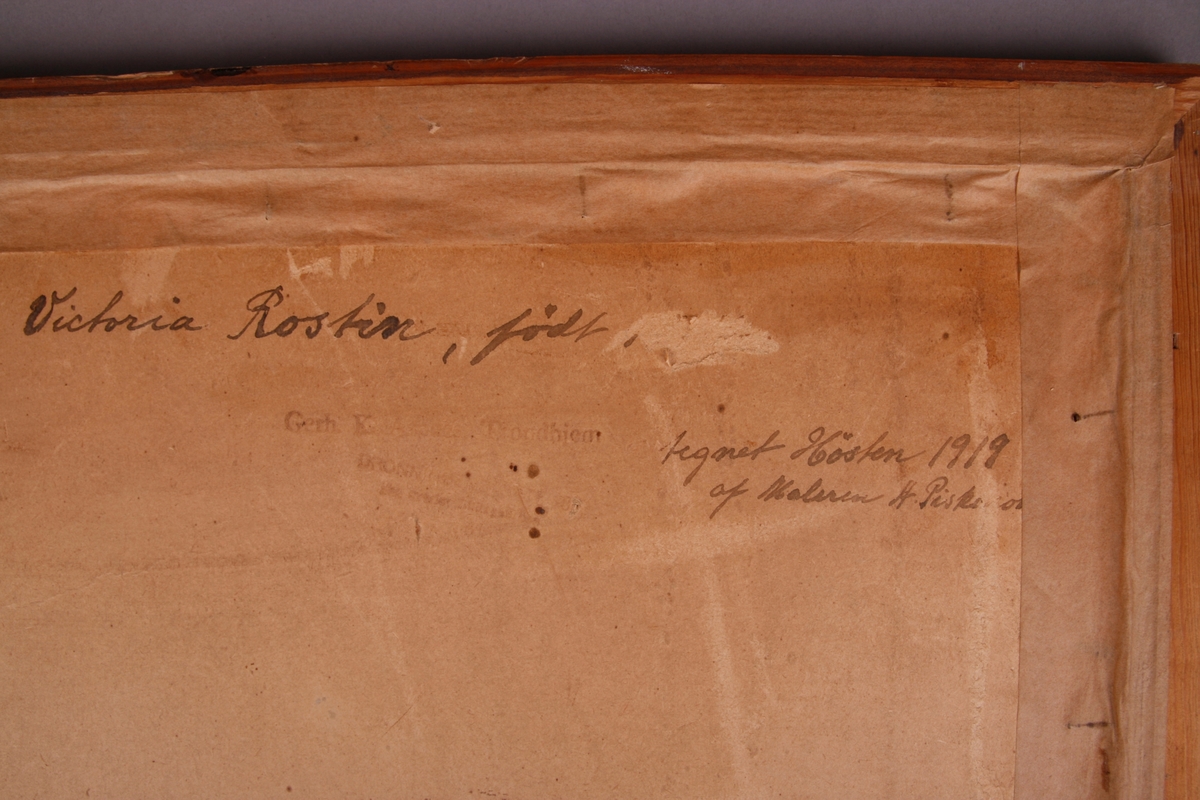 Victoria Rostin, födt,
Gerh. Trondhjem
tegnet Hösten 1919
af Maleren H.